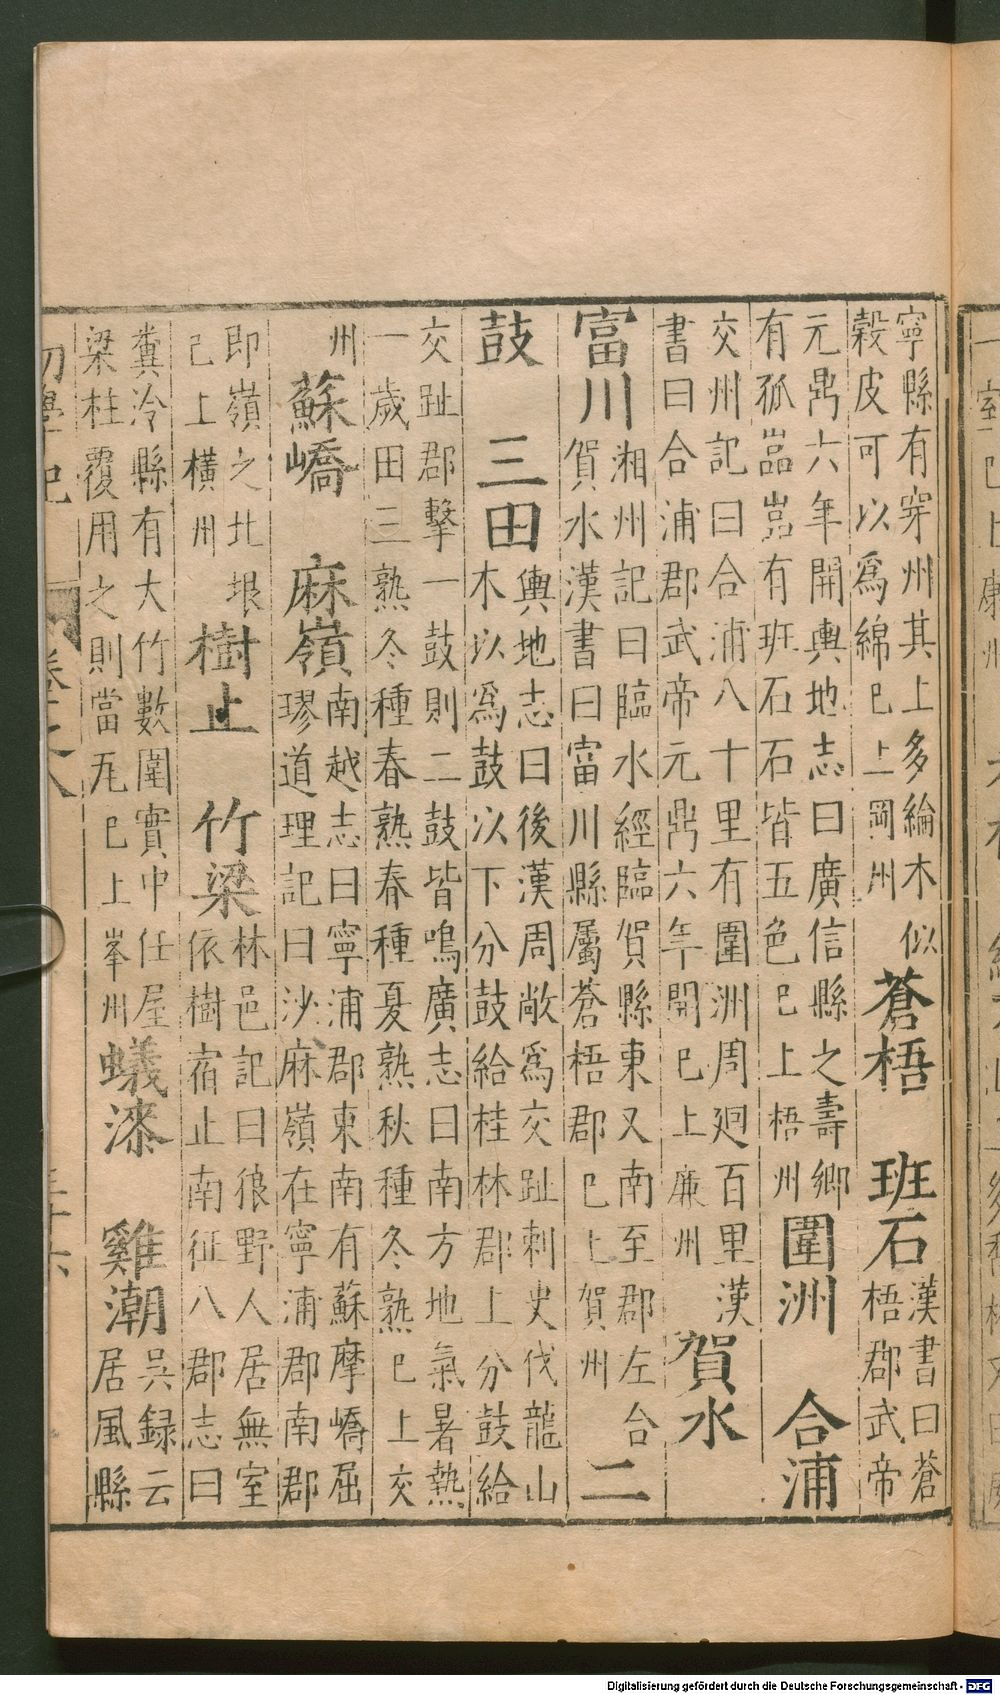 寧縣有穿州其上多綸木似
穀皮可以爲綿巳上岡州
蒼梧 班石
漢書曰蒼
梧郡武帝
元鼎六年開輿地志曰廣信縣之壽鄉
有孤嵓嵓有班石石皆五色巳上梧州
圍洲 合浦
交州記曰合浦八十里有圍洲周廻百里漢
書曰合浦郡武帝元鼎六年開巳上廉州
賀水
富川
湘州記曰臨水經臨賀縣東又南至郡左台
賀水漢書曰富川縣屬蒼梧郡巳上賀州
二
鼓 三田
輿地志曰後漢周敞爲交趾刺史伐龍山
木以爲鼓以下分鼓給桂林郡上分鼓給
交趾郡擊一鼓則二鼓皆鳴廣志曰南方地氣暑熱
一歲田三熟冬種春熟春種夏熟秋種冬熟巳上交
州
蘇嶠 麻嶺
南越志曰寧浦郡東南有蘇摩嶠屈
璆道理記曰沙麻嶺在寧浦郡南郡
即嶺之北垠
巳上橫州
樹止 竹梁
林邑記曰狼野人居無室
依樹宿止南征八郡志曰
糞冷縣有大竹數圍實中任屋
梁柱覆用之則當瓦巳上峯州
蟻漆 雞潮
吳録云
居風縣
初學記
Digitalisierung gefördert durch die Deutsche Forschungsgemeinschaft - DFG